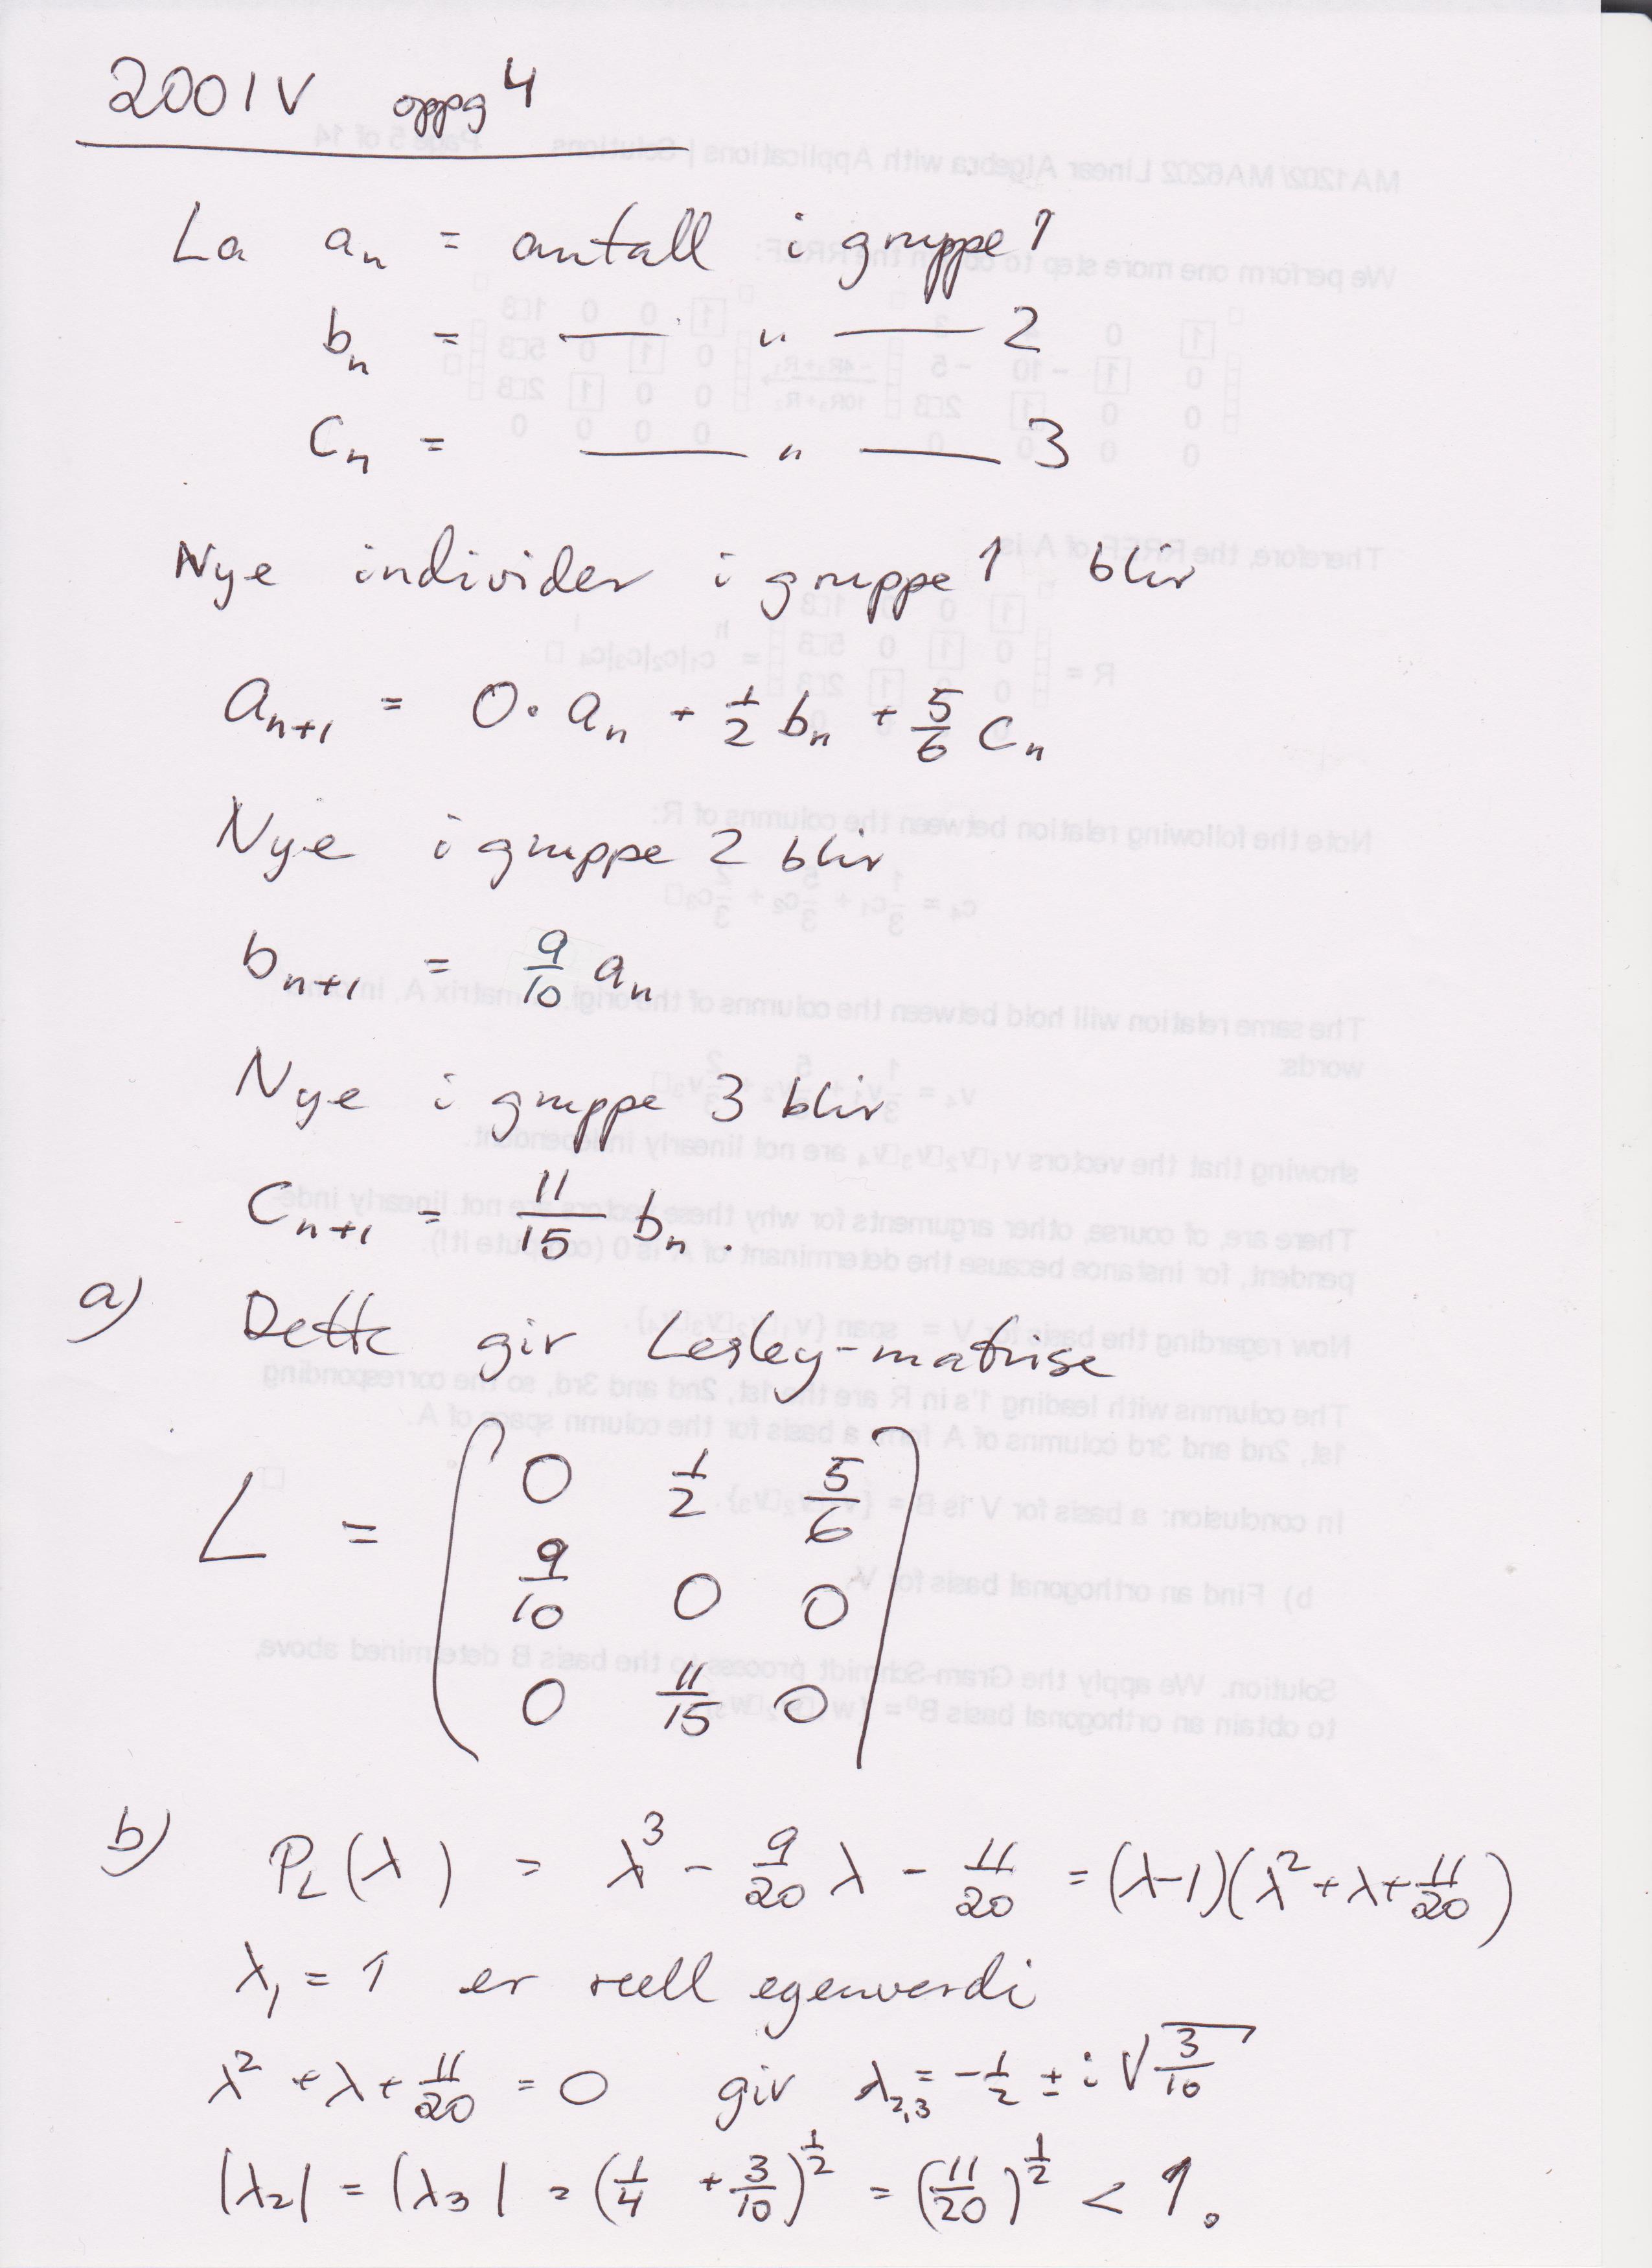 2001V oppg 4
La aₙ = antall i gruppe 1
bₙ = — " — 2
cₙ = — " — 3
Nye individer i gruppe 1 blir
aₙ₊₁ = 0 · aₙ + 1/2 bₙ + 5/6 cₙ
Nye i gruppe 2 blir
bₙ₊₁ = 9/10 aₙ
Nye i gruppe 3 blir
cₙ₊₁ = 11/15 bₙ.
a) Dette gir Lesley-matrise
L = ( 0 1/2 5/6
9/10 0 0
0 11/15 0 )
b) P_L(λ) = λ³ - 9/20 λ - 11/20 = (λ-1)(λ²+λ+11/20)
λ₁ = 1 er reell egenverdi
λ² + λ + 11/20 = 0 gir λ₂,₃ = -1/2 ± i√(3/10)
|λ₂| = |λ₃| = (1/4 + 3/10)^(1/2) = (11/20)^(1/2) < 1.